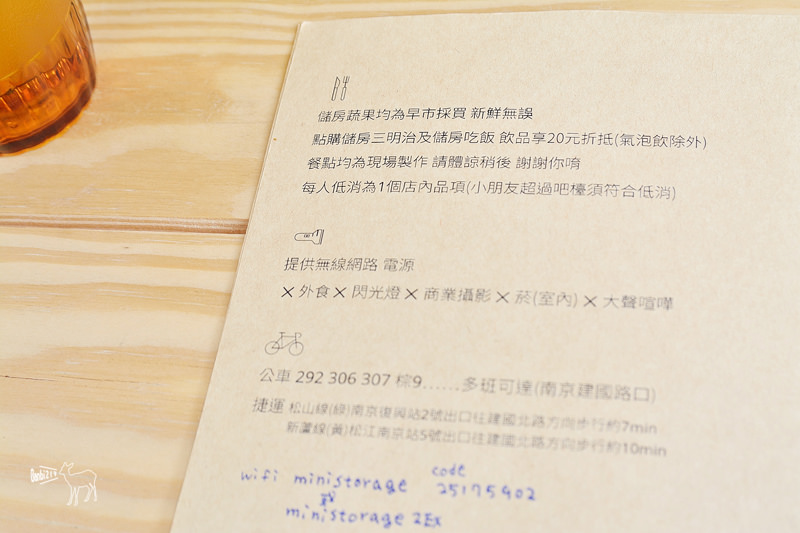 儲房蔬果均為早市採買 新鮮無誤
點購儲房三明治及儲房吃飯 飲品享20元折抵(氣泡飲除外)
餐點均為現場製作 請體諒稍後 謝謝你唷
每人低消為1個店內品項(小朋友超過吧檯須符合低消)
提供無線網路 電源
×外食×閃光燈×商業攝影×菸(室內)×大聲喧嘩
公車 292 306 307 棕9......多班可達(南京建國路口)
捷運 松山線(綠)南京復興站2號出口往建國北路方向步行約7min
新蘆線(黃)松江南京站5號出口往建國北路方向步行約10min
wifi ministorage code 25175902
或
ministorage 2Ex